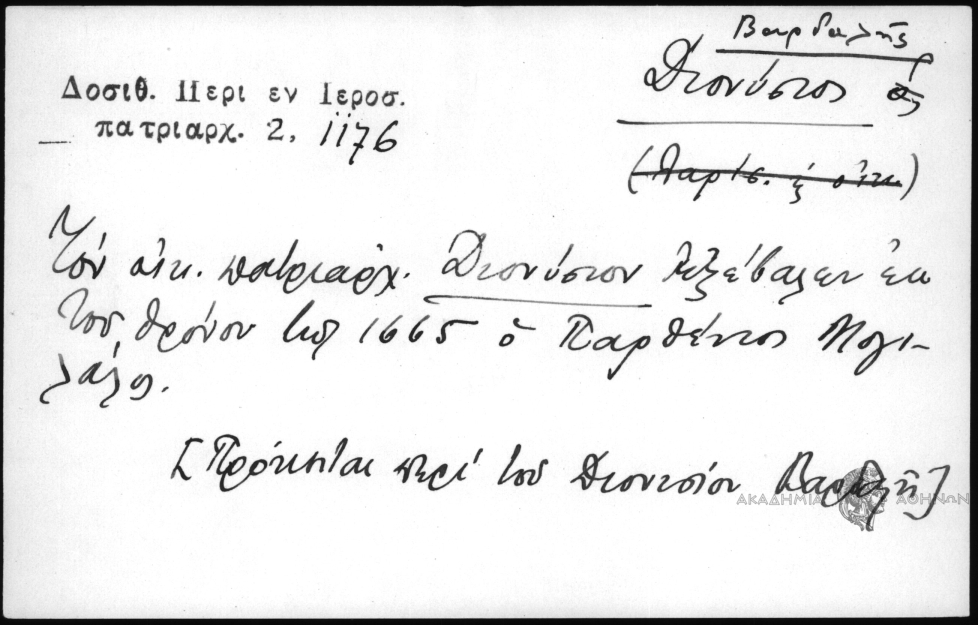 Βαρδαλῆς
Δοσιθ. Περι εν Ιεροσ.
πατριαρχ. 2, 1176
Διονύσιος
(Λαρίσ. ἐξ οἰκ.)
Τόν οἰκ. πατριαρχ. Διονύσιον ἐξέβαλεν ἐκ
τοῦ θρόνου τῷ 1665 ὁ Παρθένιος Μογι-
λάλος.
[Πρόκειται περί τοῦ Διονυσίου Βαρδαλῆ]
ΑΚΑΔΗΜΙΑ ΑΘΗΝΩΝ